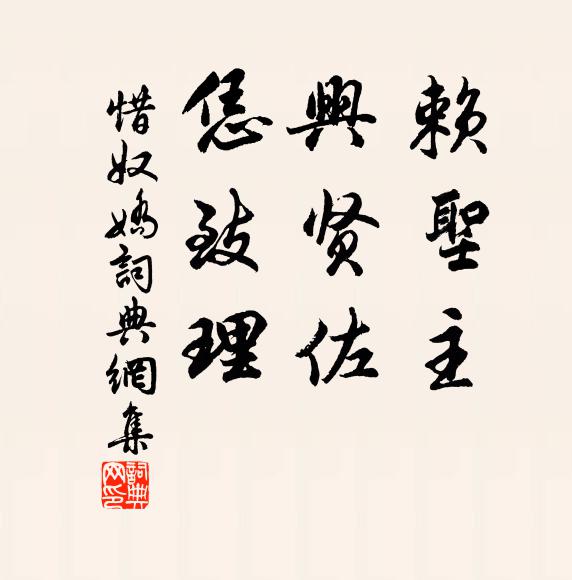 赖聖主
興贤佐
恁致理
惜奴嬌詞典網集
詞典网印